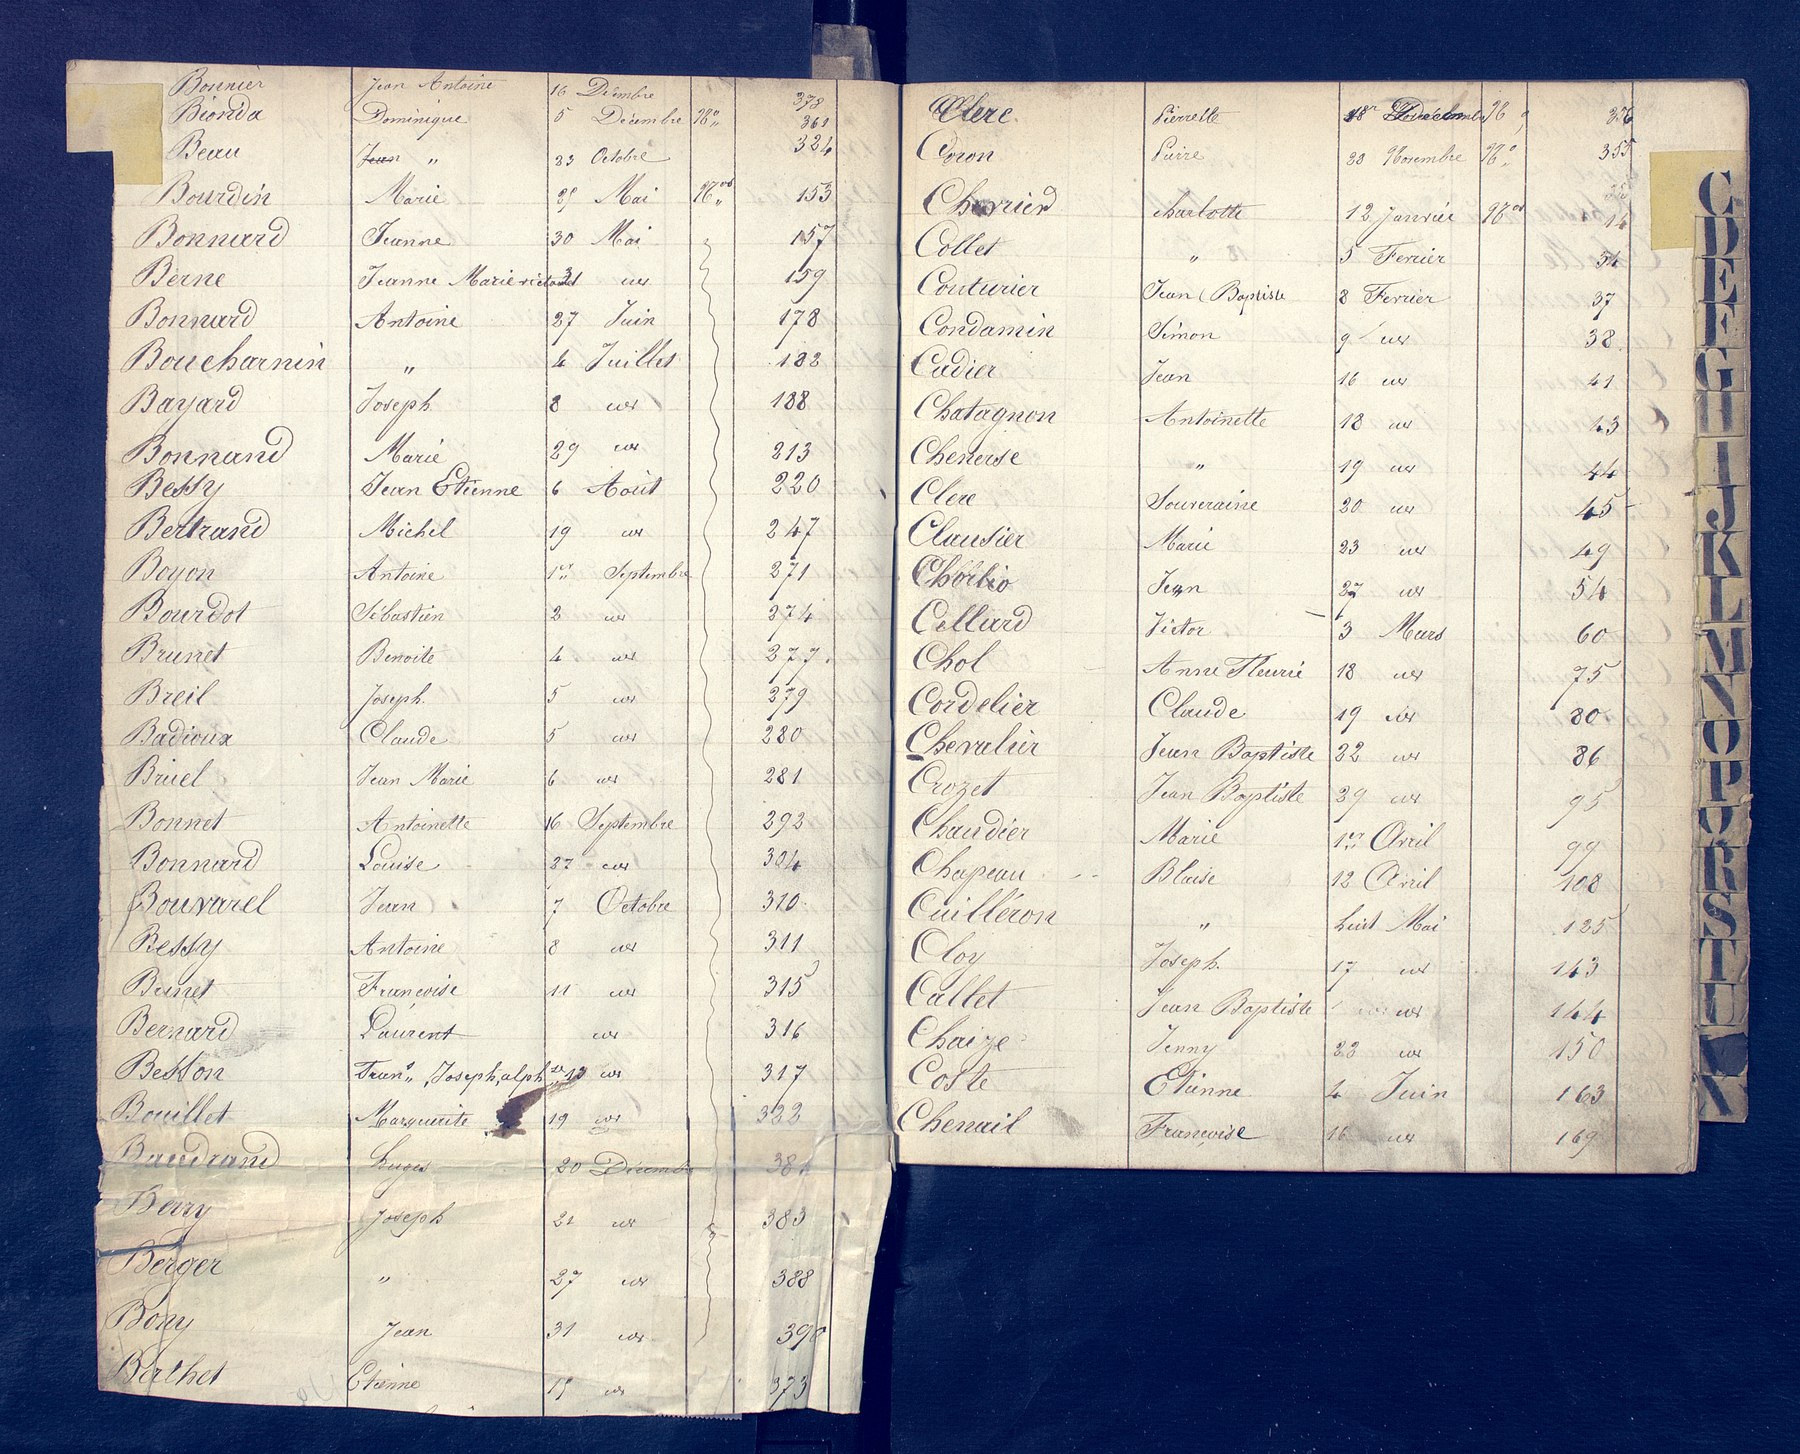 Bonnier Jean Antoine 16 Décembre 378
Bionda Dominique 5 Décembre 98 361
Beau Jean " 23 Octobre 324
Bourdin Marie 29 Mai 153
Bonnard Jeanne 30 Mai 157
Berne Jeanne Marie 159
Bonnard Antoine 27 Juin 178
Boucharnin " 4 Juillet 182
Bayard Joseph 8 188
Bonnand Marie 29 213
Bessy Jean Etienne 6 Août 220
Bertrand Michel 19 247
Boyon Antoine 1er Septembre 271
Bourdot Sébastien 2 274
Brunet Benoite 4 277
Breil Joseph 5 279
Badioux Claude 5 280
Bruel Jean Marie 6 281
Bonnet Antoinette 16 Septembre 292
Bonnard Louise 27 304
Bouvarel Jean 7 Octobre 310
Bessy Antoine 8 311
Brunet Françoise 11 315
Bernard Laurent 316
Besson Joseph, alph 13 317
Bouillet Marguerite 19 322
Baudrand 20 Décembre
Berry Joseph 21 383
Berger " 27 388
Bony Jean 31 390
Berthet Etienne 373
Clerc Pierrette 376
Coron Pierre 23 Novembre 355
Charlotte 12 Janvier 14
Collet " 5 Fevrier 34
Couturier Jean Baptiste 8 Fevrier 37
Condamin Simon 9 38
Cadier Jean 16 41
Chatagnon Antoinette 18 43
Chenevse " 19 44
Clerc Souveraine 20 45
Clausier Marie 23 49
Jean 27 54
Cellard Victor 3 Mars 60
Chol Anne Fleurie 18 75
Cordelier Claude 19 80
Chevalier Jean Baptiste 22 86
Crozet Jean Baptiste 29 95
Chaudier Marie 1er Avril 99
Chapeau Blaise 12 Avril 108
Cuilléron " huit Mai 125
Cloy Joseph 17 143
Callet Jean Baptiste 144
Chaize Jenny 22 150
Coste Etienne 4 Juin 163
Chenail Françoise 16 169
C
D
E
F
G
H
I
J
K
L
M
N
O
P
R
S
T
U